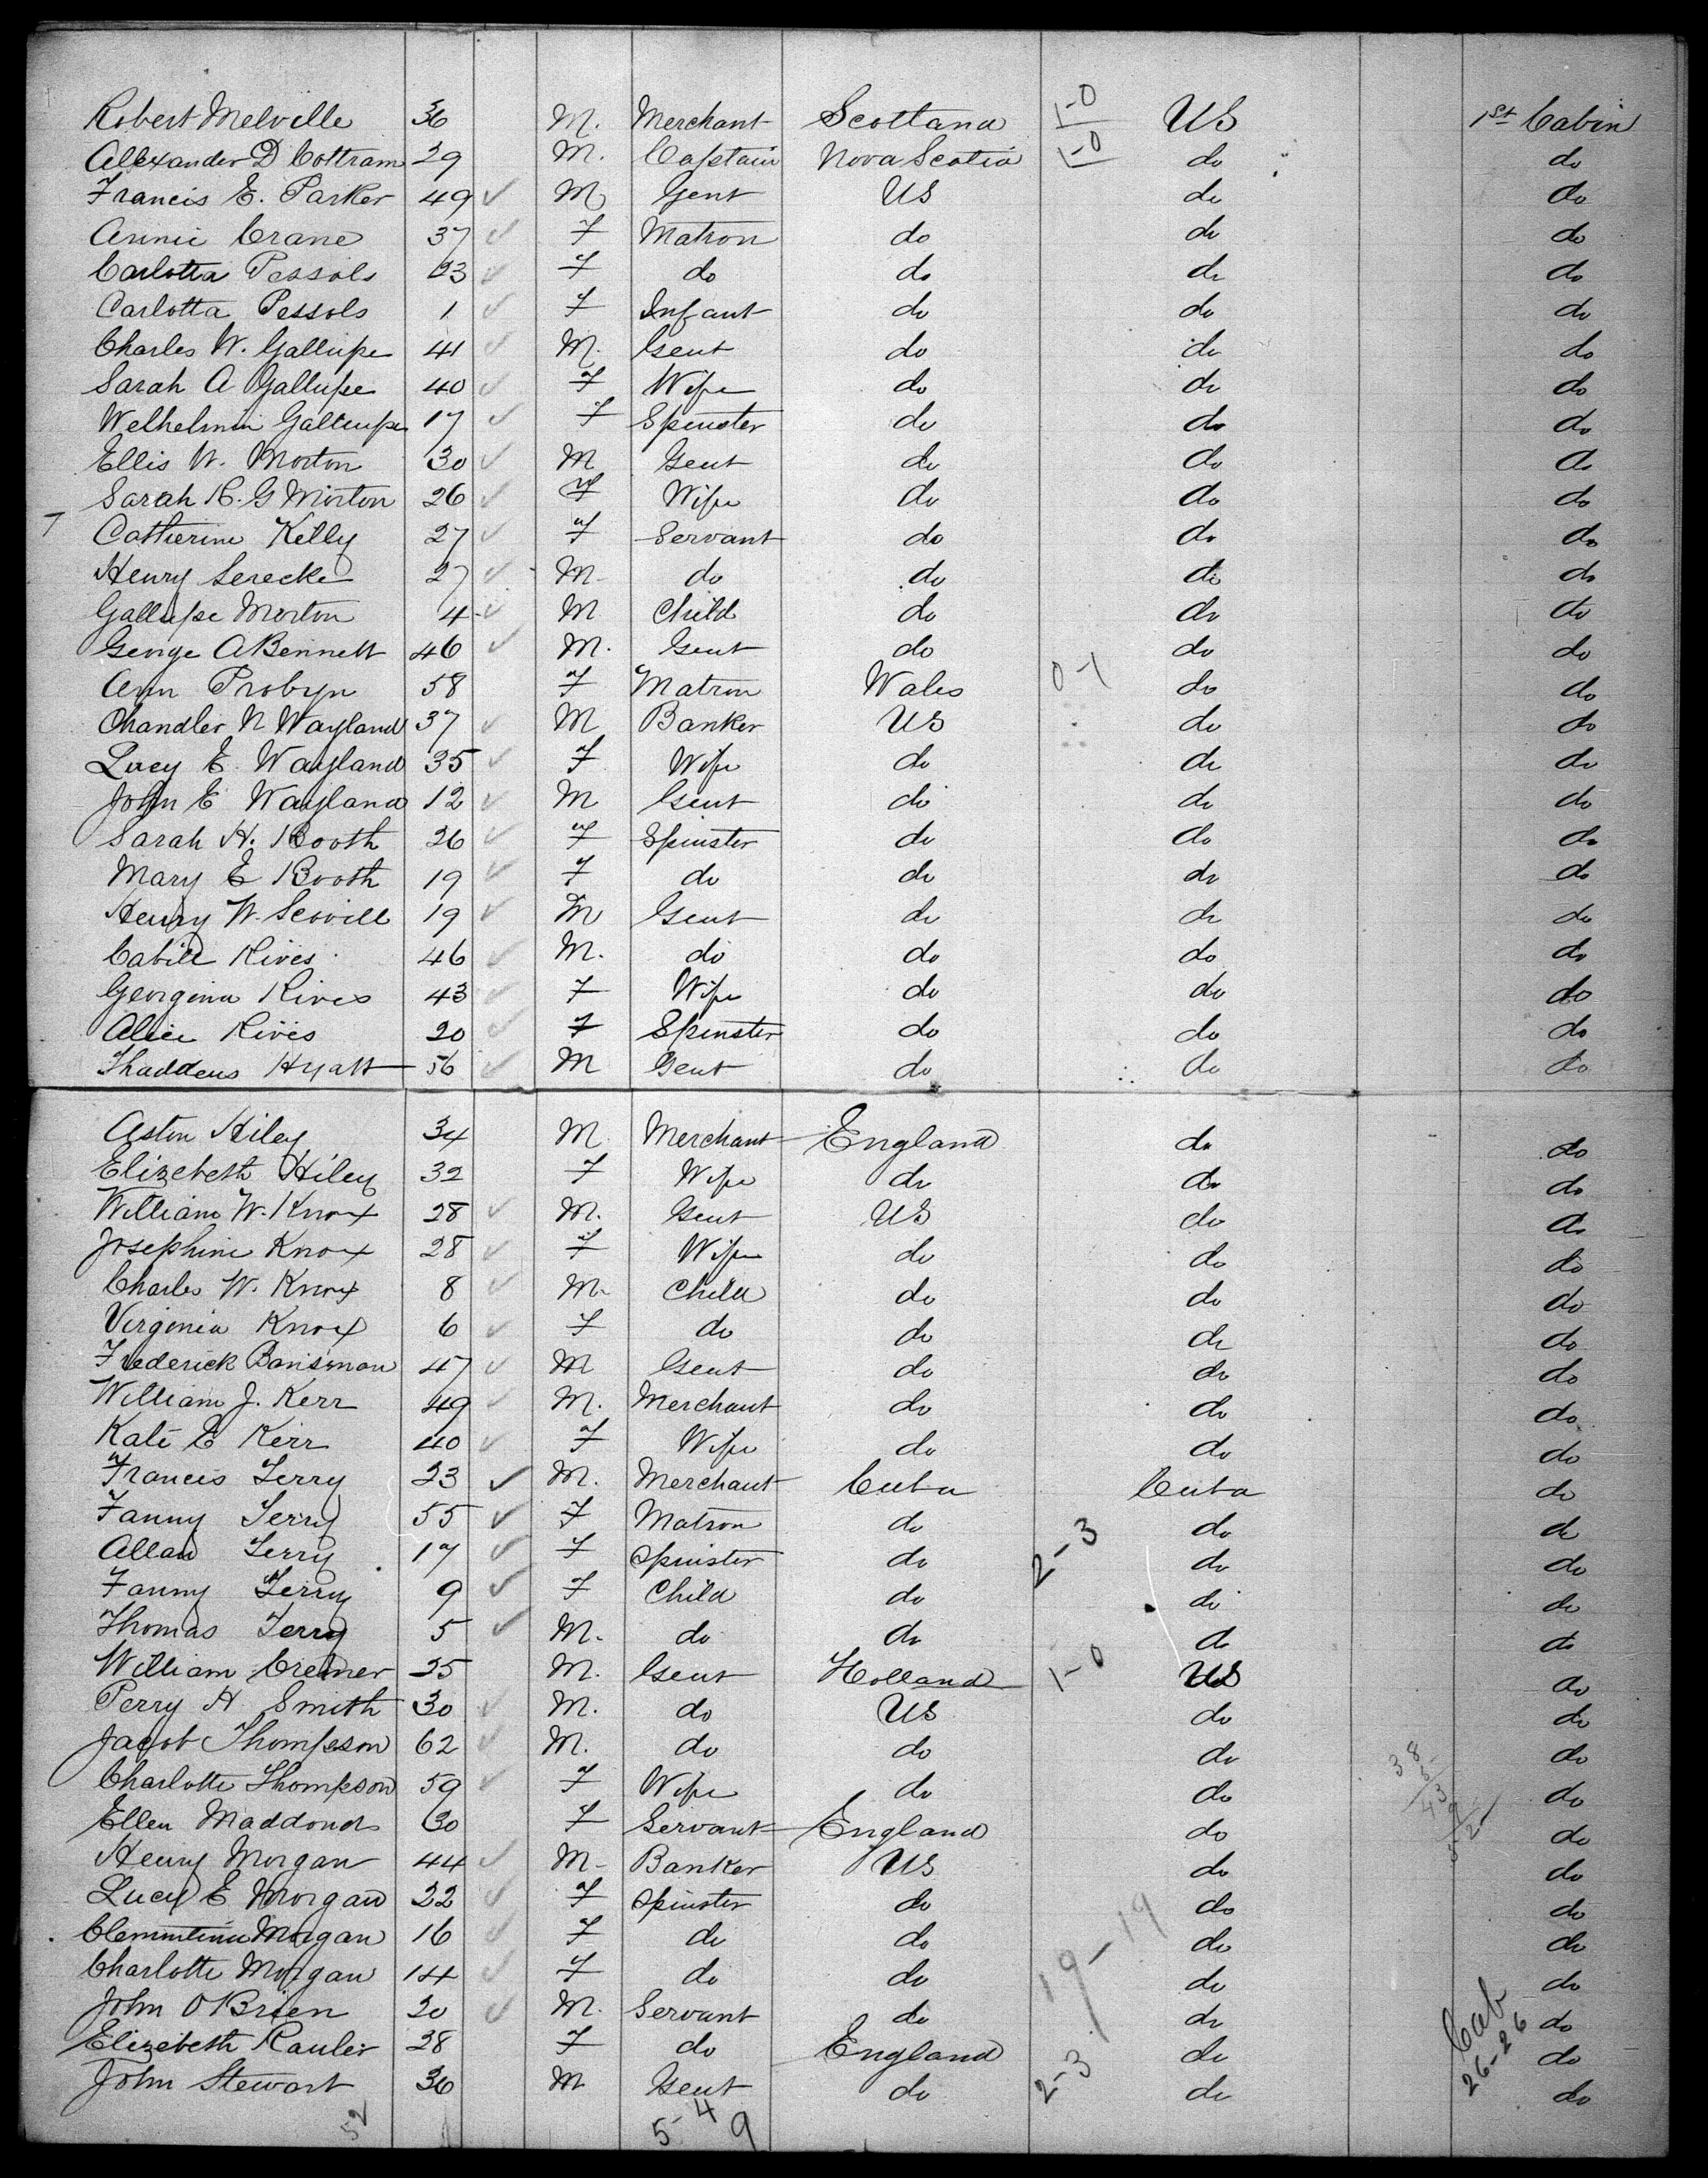 Robert Melville 36 M. Merchant Scotland 1-0 US 1st Cabin
Allexander D Cottram 29 M. Captain Nova Scotia 1-0 do do
Francis E. Parker 49 ✓ M Gent US do do
Annie Crane 37 ✓ F Matron do do do
Carlotta Pessols 23 ✓ F do do do do
Carlotta Pessols 1 ✓ F Infant do do do
Charles W. Gallupe 41 ✓ M. Gent do do do
Sarah A Gallupe 40 ✓ F Wife do do do
Welhelmin Gallupe 17 ✓ F Spinster do do do
Ellis W. Morton 30 ✓ M Gent do do do
Sarah H. G Morton 26 ✓ F Wife do do do
Catherine Kelly 27 ✓ F Servant do do do
Henry Serecke 27 ✓ M do do do do
Gallupe Morton 4 ✓ M Child do do do
George A Bennett 46 ✓ M. Gent do do do
Ann Probyn 58 F Matron Wales 0-1 do do
Chandler N Wayland 37 ✓ M Banker US do do
Lucy E. Wayland 35 ✓ F Wife do do do
John E Wayland 12 ✓ M Gent do do do
Sarah H. Booth 26 ✓ F Spinster do do do
Mary E Booth 19 ✓ F do do do do
Henry W. Scovill 19 ✓ M Gent do do do
Cabill Rives 46 ✓ M. do do do do
Georgina Rives 43 ✓ F Wife do do do
Alice Rives 20 ✓ F Spinster do do do
Thaddeus Hyatt 56 ✓ M Gent do do do
Aston Hiley 34 M Merchant England do do
Elizebeth Hiley 32 F Wife do do do
William W. Knox 28 ✓ M. Gent US do do
Josephine Knox 28 ✓ F Wife do do do
Charles W. Knox 8 ✓ M. Child do do do
Virginia Knox 6 ✓ F do do do do
Frederick Bansman 47 ✓ M Gent do do do
William J. Kerr 49 ✓ M. Merchant do do do
Kate E Kerr 40 ✓ F Wife do do do
Francis Terry 23 ✓ M. Merchant Cuba Cuba do
Fanny Terry 55 ✓ F Matron do 2-3 do do
Allan Terry 17 ✓ F Spinster do do do
Fanny Terry 9 ✓ F Child do do do
Thomas Terry 5 ✓ M. do do do do
William Cremer 25 M. Gent Holland 1-0 US do
Perry H Smith 30 ✓ M. do US do do
Jacob Thompson 62 ✓ M. do do do do
Charlotte Thompson 59 ✓ F Wife do do do
Ellen Maddond 30 F Servant England do do
Henry Morgan 44 ✓ M Banker US do do
Lucy E Morgan 22 ✓ F Spinster do do do
Clemmtinia Morgan 16 ✓ F do do 19-19 do do
Charlotte Morgan 14 ✓ F do do do do
John OBrien 20 ✓ M. Servant do do do
Elizebeth Rauler 28 F do England do Cab 26-26 do
John Stewart 36 M Gent do 2-3 do do
52 5-4 9